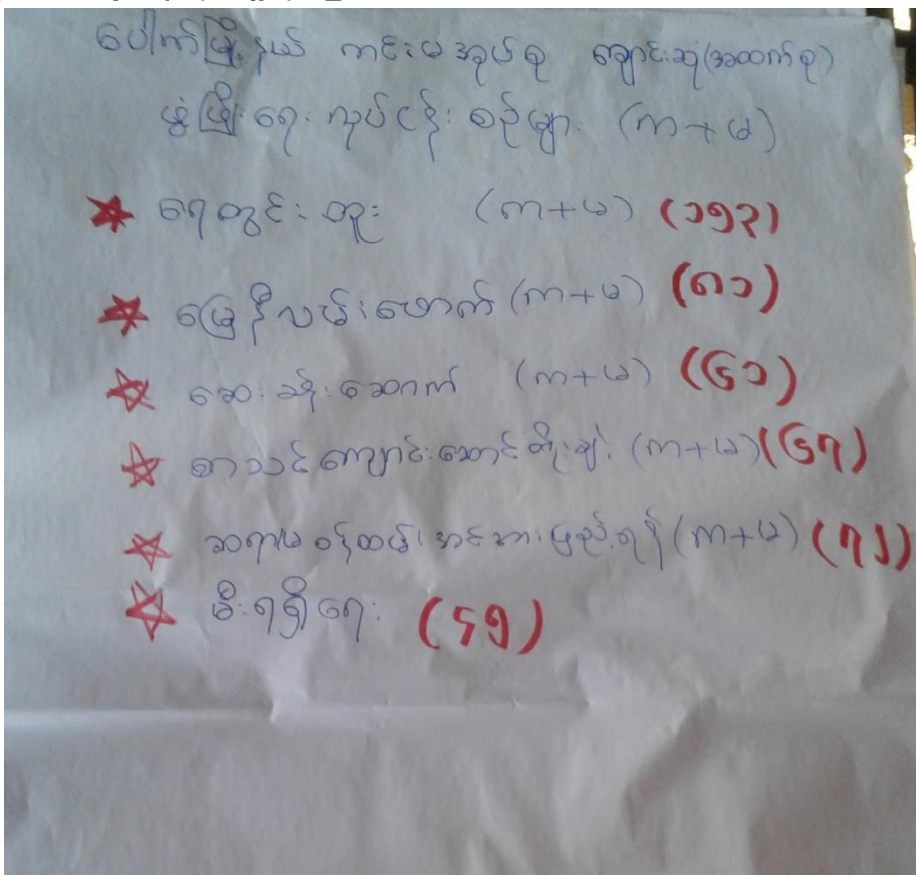 ပေါက်မြို့နယ် ကင်းမအုပ်စု ချောင်းဆုံ(အထက်စု)
ဖွံ့ဖြိုးရေး လုပ်ငန်း စဉ်များ (ကာ+မ)
ရေတွင်း တူး (ကာ+မ) (၁၅၃)
မြေနီလမ်းဖောက် (ကာ+မ) (၈၁)
ဆေးခန်းဆောက် (ကာ+မ) (၆၁)
စာသင်ကျောင်းဆောင်တိုးချဲ့ (ကာ+မ) (၆၇)
ဆရာမ ဝန်ထမ်း အင်အားဖြည့်ရန် (ကာ+မ) (၇၁)
မီးရရှိရေး (၄၅)